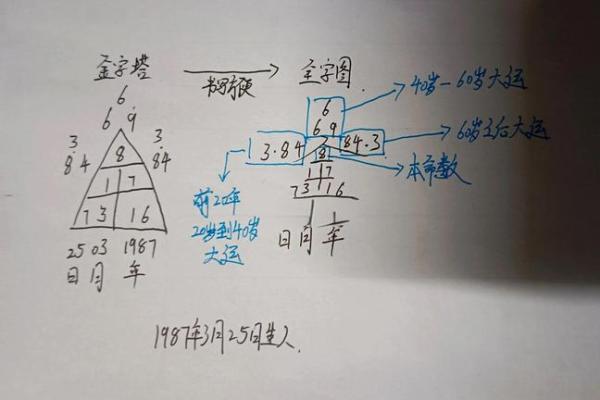 金字塔
书写方便
全字图
6
6 9
3.
8 4
3.
84
8
1 7
7 3 1 6
25 03 1987
日 月 年
6
6 9
3.84
8
84.3
1 7
7 3 1 6
1
日 月 年
40岁-60岁大运
60岁之后大运
本命数
前20年
20岁到40岁
大运
1987年3月25日生人.